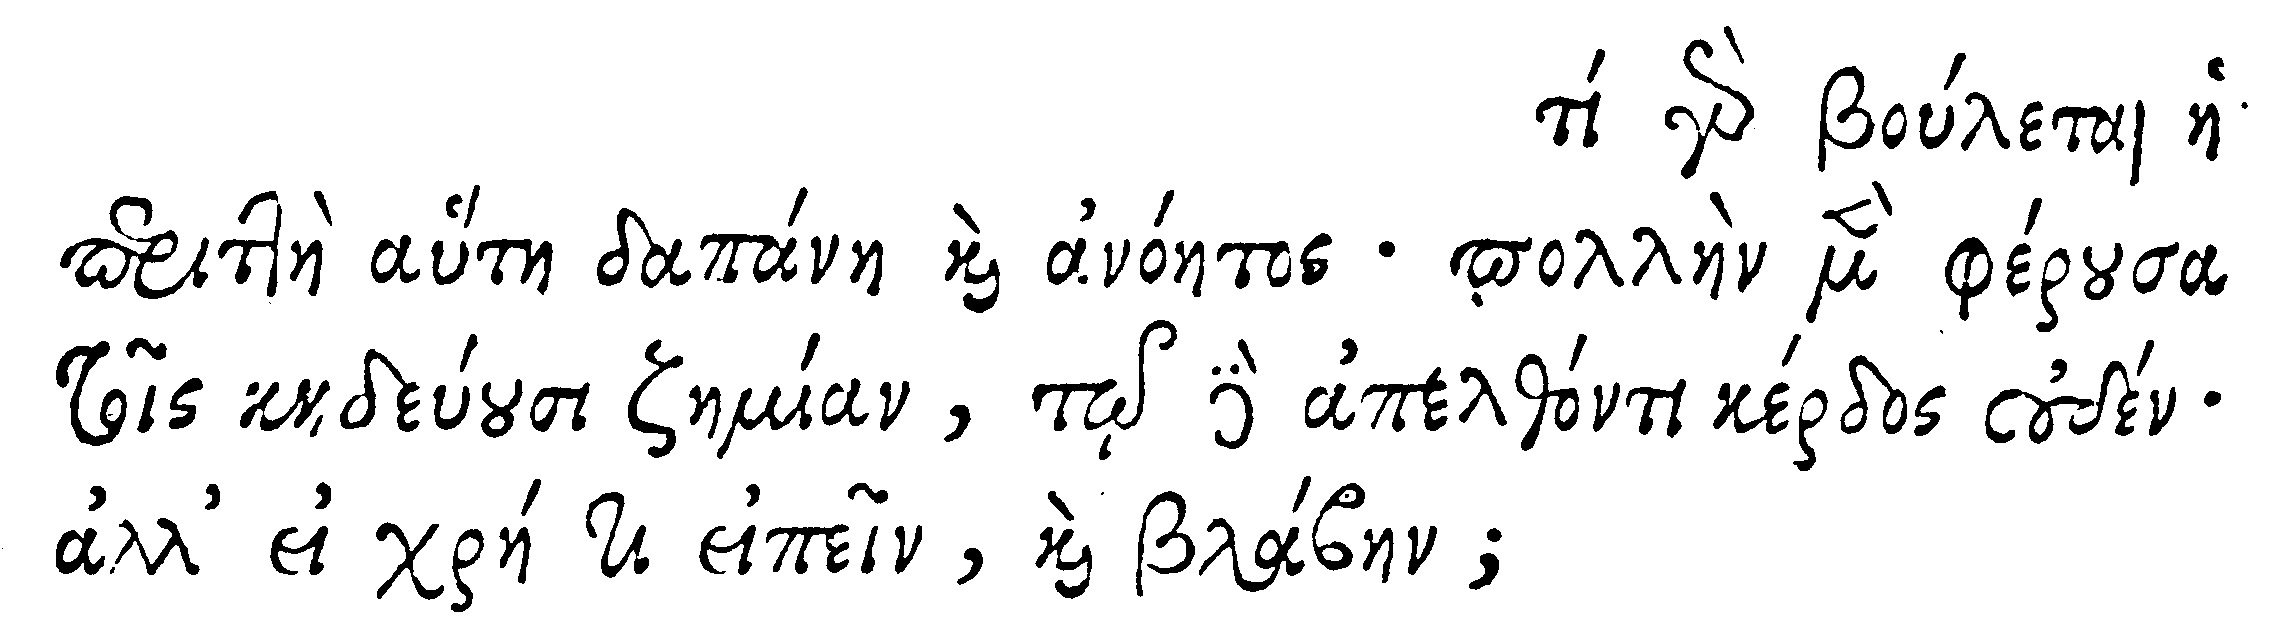 τί γὰρ βούλεται ἡ
περιττὴ αὕτη δαπάνη καὶ ἀνόητος· πολλὴν μὲν φέρουσα
τοῖς κηδεύουσι ζημίαν, τῷ δὲ ἀπελθόντι κέρδος οὐδέν·
ἀλλ’ εἰ χρή τι εἰπεῖν, καὶ βλάβην;